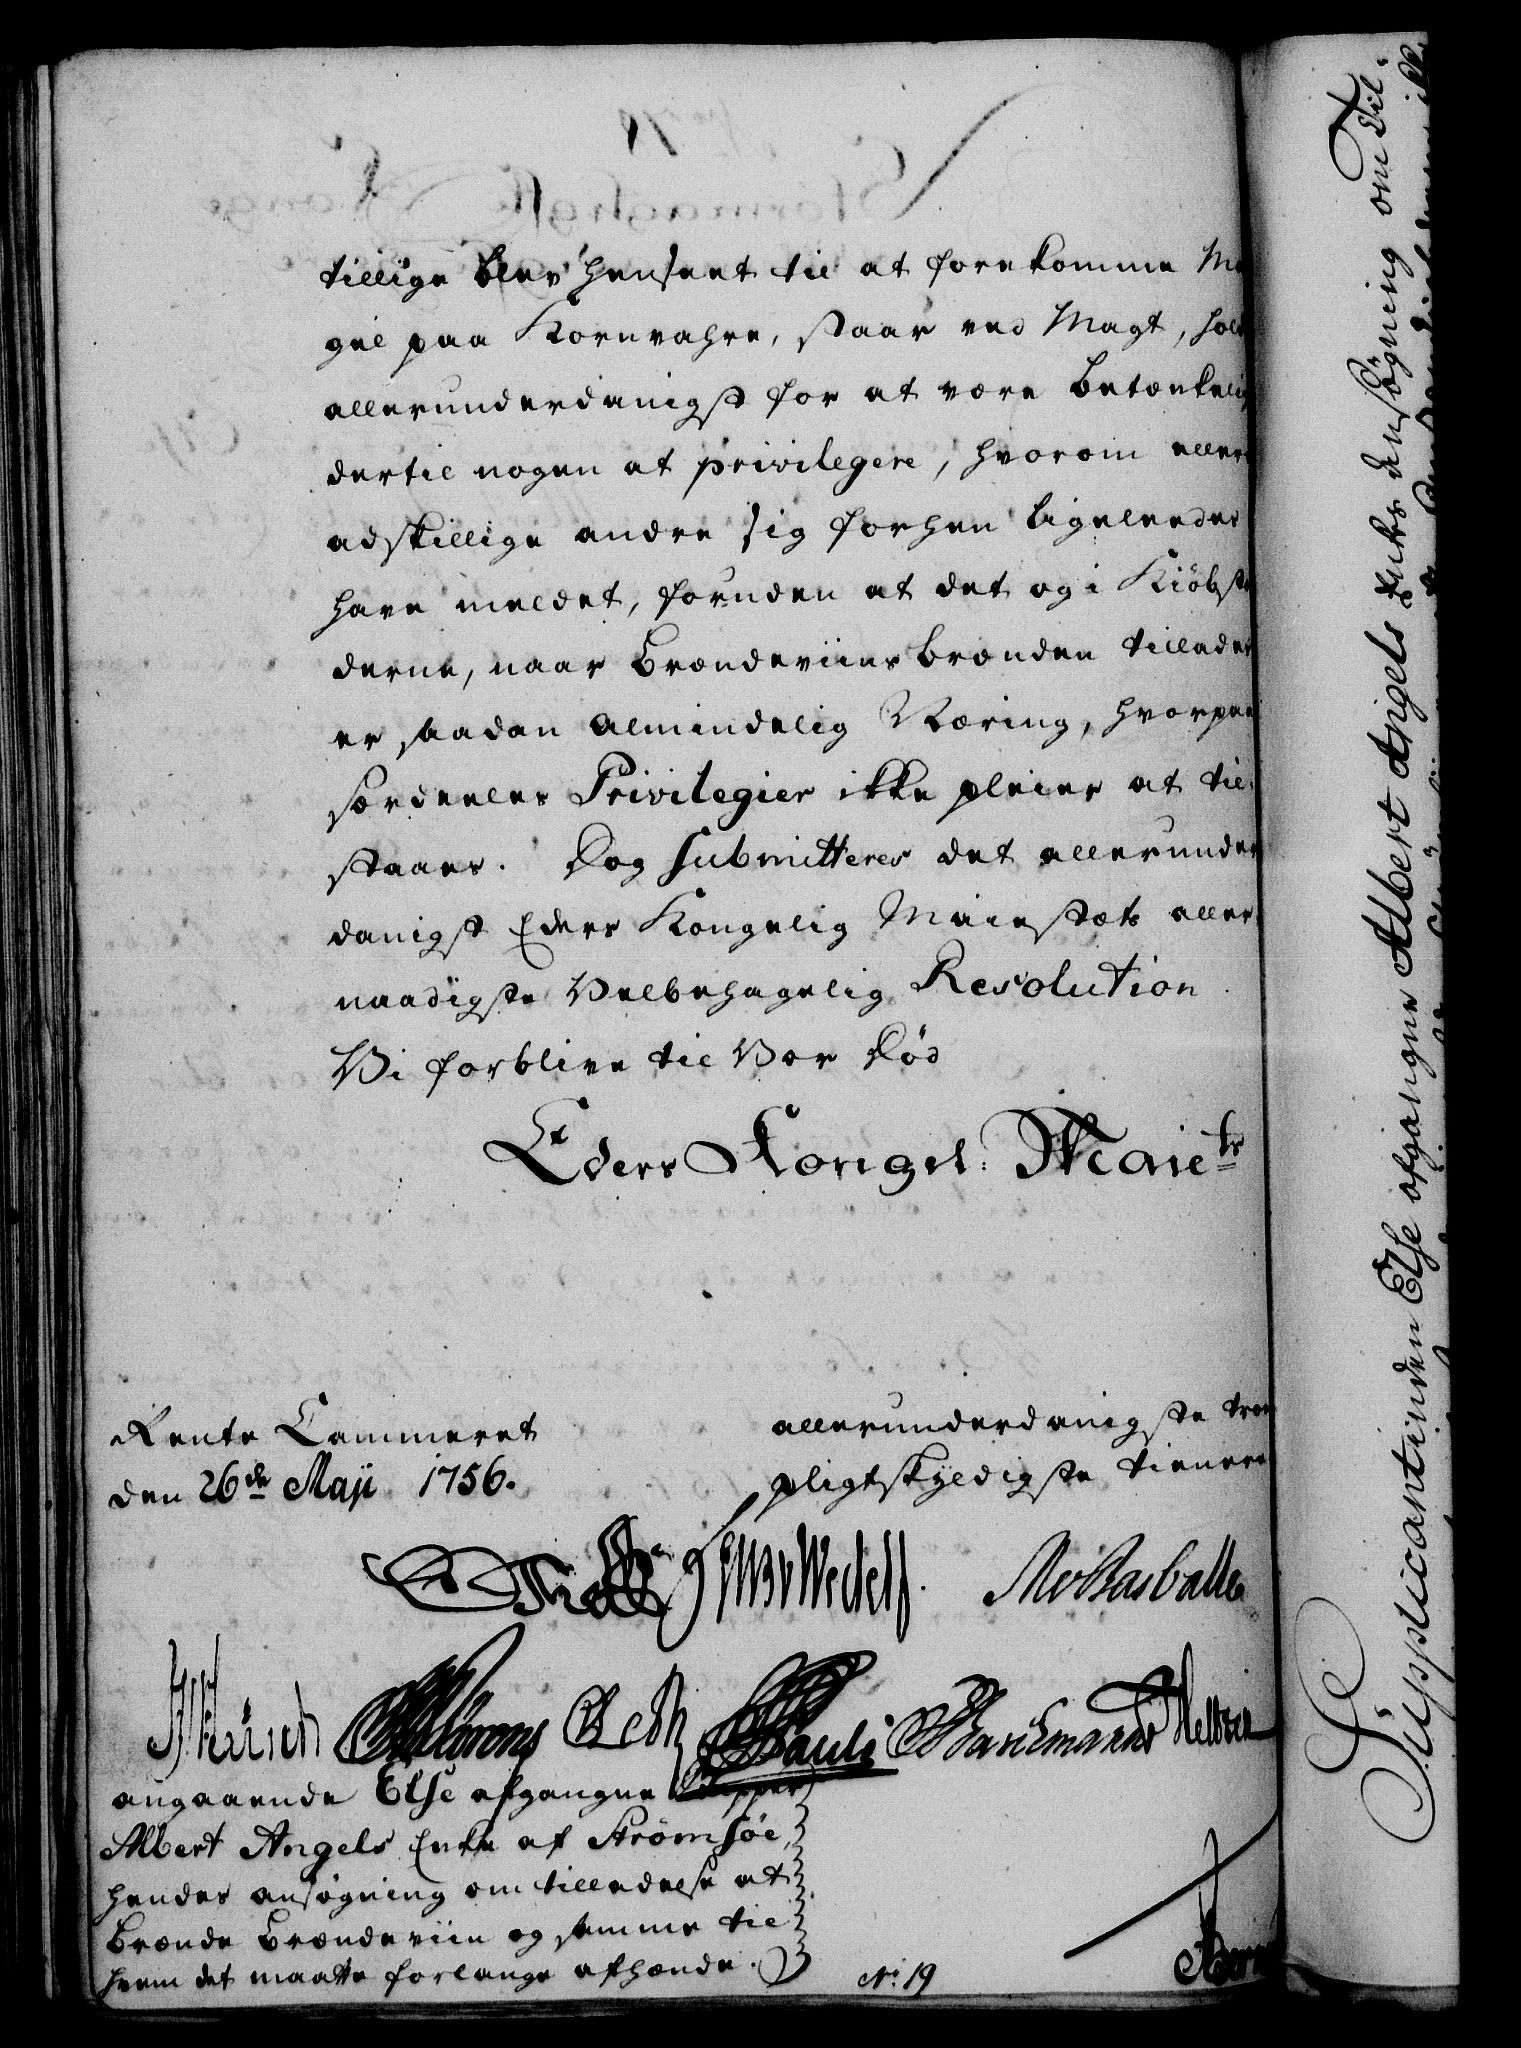 tillige blev henseet til at forekomme Ma
gel paa Kornvahre, staar ved Magt, hold
allerunderdanigst for at være betænkelig
dertil nogen at privilegere, hvorom aller
adskillige andre sig forhen ligeleedes
have meldet, foruden at det og i Kiöbstæ
derne, naar Brændeviins brænden tillades
er saadan almindelig Næring, hvorpaa
særdeeles Privilegier ikke pleier at til
staaes. Dog submitteres det allerunder
danigst Eders Kongelig Maiestæts aller
naadigste Velbehagelig Resolution.
Vi forblive til Vor Död
Eders Kongel: Maiets
Rente Cammeret
den 26de Maji 1756.
allerunderdanigste troe
pligtskyldigste tienere
Wedell
angaaende Else afgangne Skipper
Albert Angels Enke af Strömsöe,
hendes ansögning om tilladelse at
brænde Brændeviin og samme til
hvem det maatte forlange afhænde.
No: 19
Supplicantinden Else afgangne Albert Angels Enkes Ansögning om Til